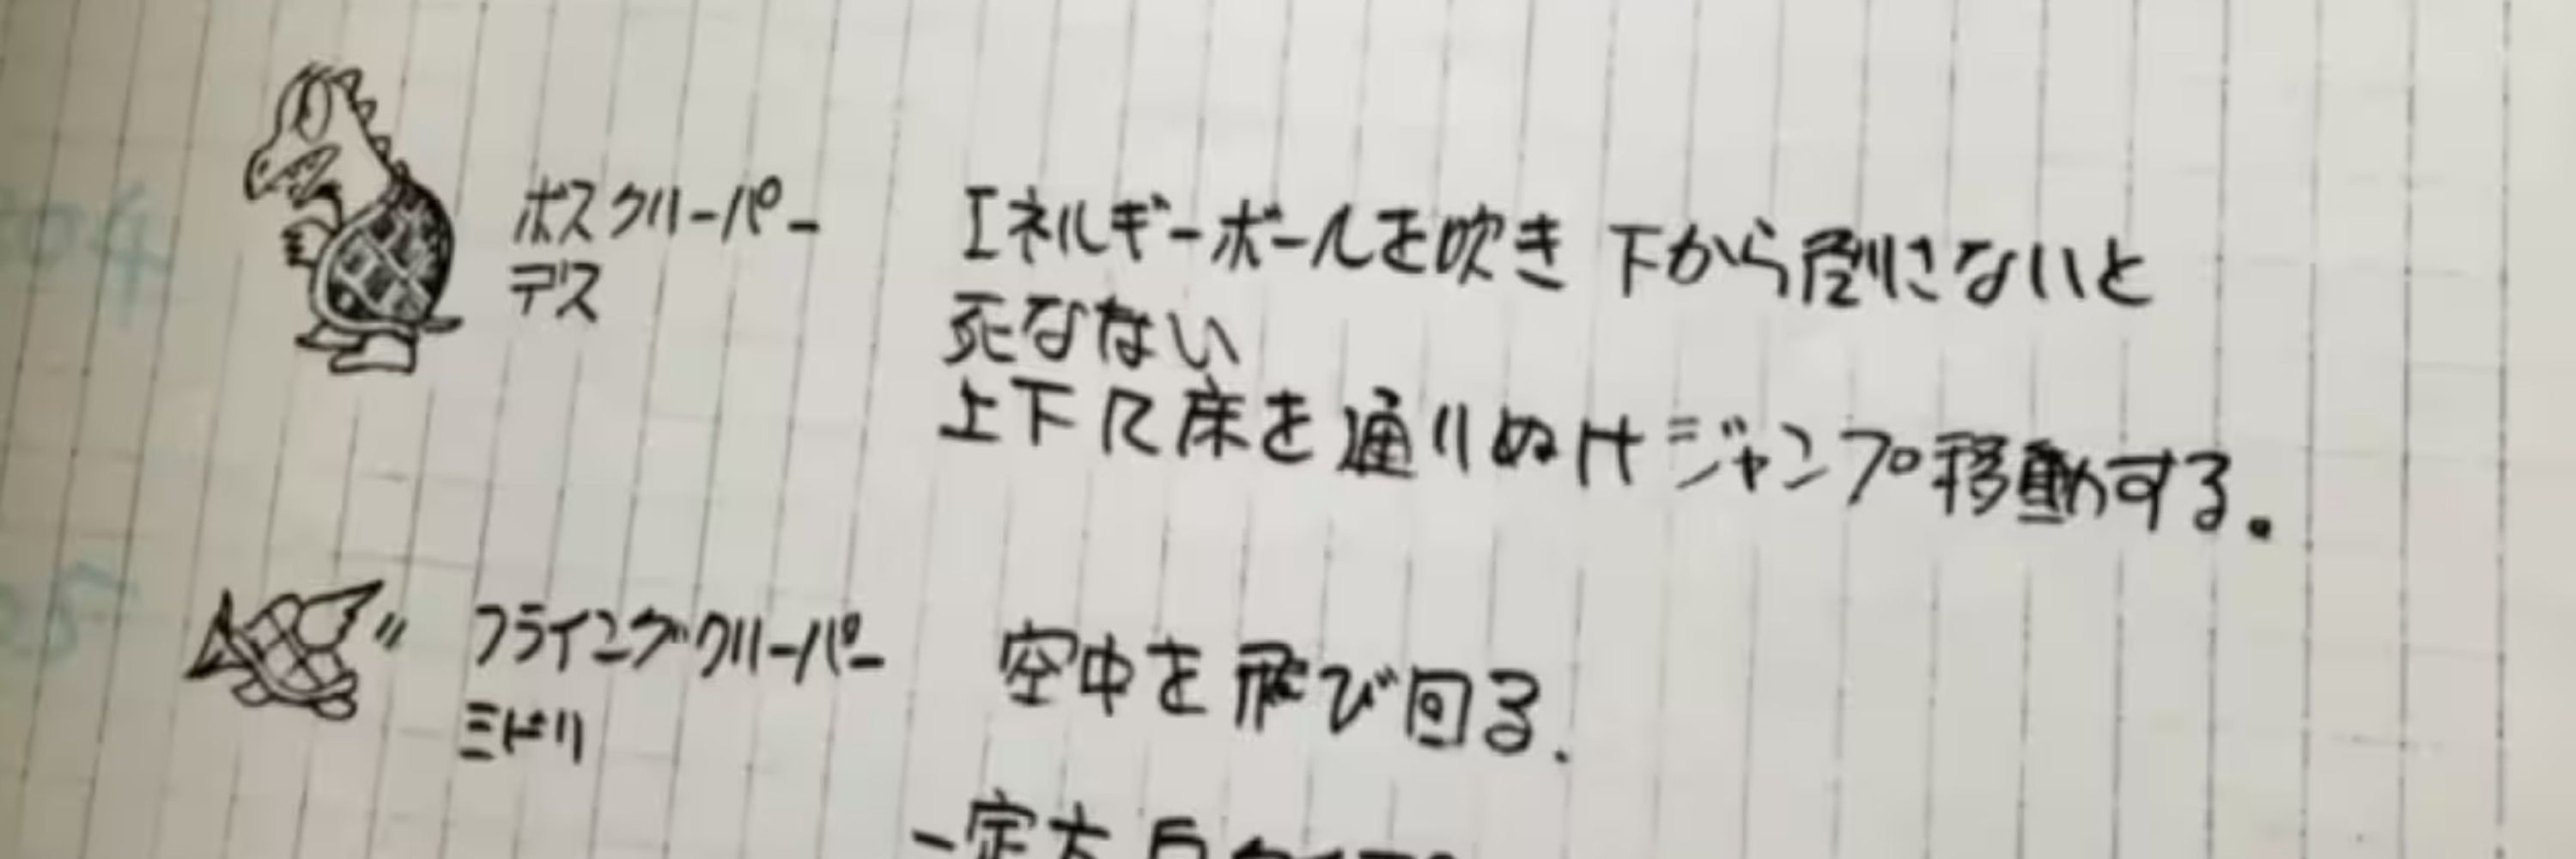 ボスクリーパー
デス
エネルギーボールを吹き 下から倒さないと
死なない
上下に床を通りぬけジャンプ移動する。
フライングクリーパー
ミドリ
空中を飛び回る.
一定方向